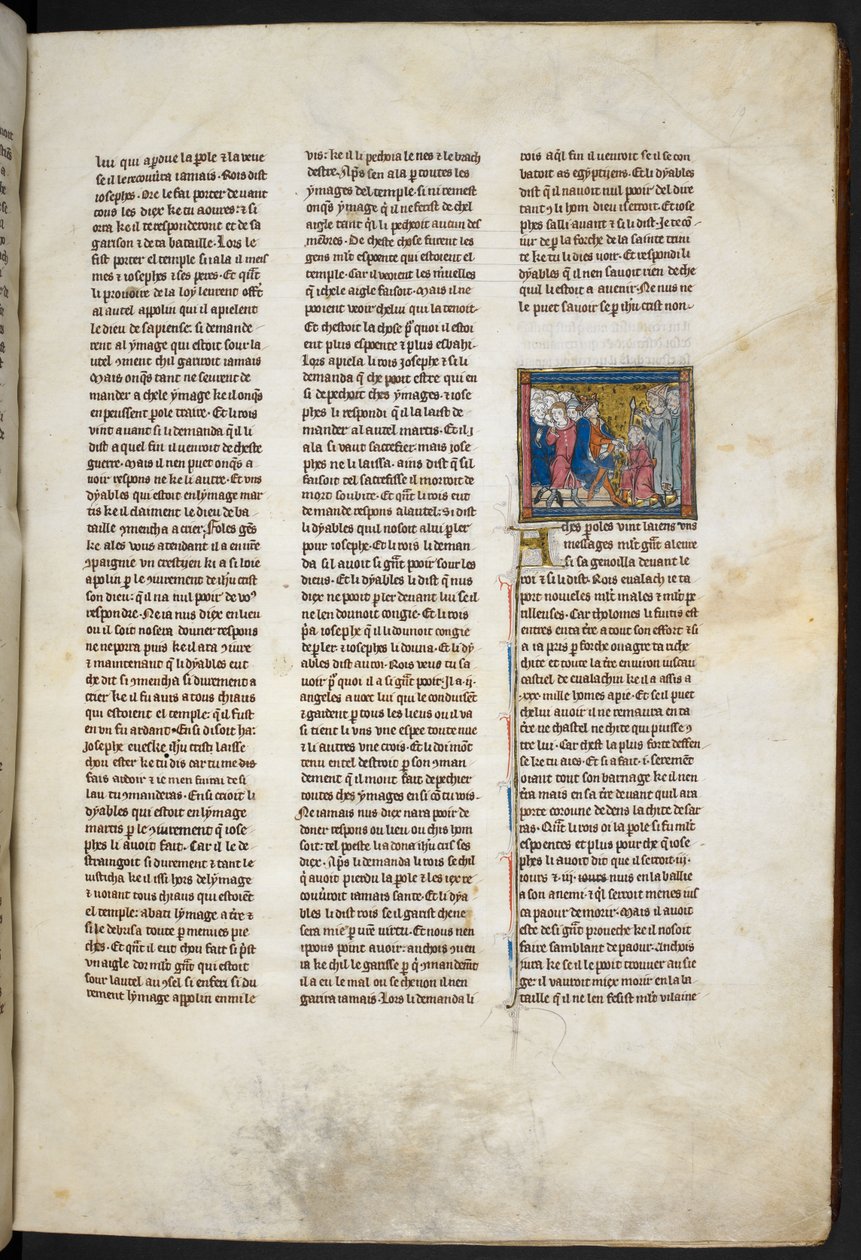 lui qui a pdue la pole ⁊ la veue
se il le recouura iamais · Rois dist
iosephes · Ore le fai porter deuant
tous les diex ke tu aoures: ⁊ si
ora ke il te responderont et de sa
garison ⁊ de ta bataille · Lors le
fist porter el temple si ala il meis
mes ⁊ iosephes ⁊ ses peres · Et qñt
li prouoire de la loy leurent offt
al autel appolin qui il apielent
le dieu de sapiense: si demande
rent al ymage qui estoit sour la
utel ꝯment chil garroit iamais
Mais onqs tant ne seurent de
mander a chele ymage ke il onqs
en peussent pole traire · Et li rois
vint auant si li demanda qil li
dist a quel fin il uenroit de cheste
guerre · Mais il nen puet onqs a
uoir respons ne ke li autre · Et vns
dyables qui estoit en lymage mar
tis ke il claiment le dieu de ba
taille ꝯmencha a crier · Foles gēs
ke ales vous atendant il a en ure
ꝯpaignie vn crestyen ki a si loie
apolin p le ꝯiurement de ihu crist
son dieu: qil na nul pooir de vos
respondre · Ne ia nus diex en lieu
ou il soit nosera douner respons
ne ne pora puis ke il ara ꝯiure
⁊ maintenant q li dyables eut
che dit si ꝯmencha si durement a
crier ke il fu auis a tous chiaus
qui estoient el temple: qil fust
en vn fu ardant · En si disoit ha:
Iosephe eueske ihu crist laisse
chou ester ke tu dis car tu me dis
fais ardoir ⁊ ie men fuirai de si
la u tu ꝯmanderas · Ensi crioit li
dyables qui estoit en lymage
martis p le ꝯiurement q iose
phes li auoit fait · Car il le de
straingoit si durement ⁊ tant le
iusticha ke il issi hors delymage
⁊ uoiant tous chiaus qui estoiēt
el temple: abati lymage a tre ⁊
si le debrisa toute p menues pie
ches · Et qñt il eut chou fait si pst
vn aigle dor mlt gñt qui estoit
sour lautel au ꝯsel si enferi si du
rement lymage appolin enmi le
vis: ke il li pechoia le nes ⁊ le brach
destre · Aps sen ala p toutes les
ymages del temple · si ni remest
onqs ymage q il ne ferist de chel
aigle tant qil li pechoit aucun des
mēbres · De cheste chose furent les
gens mlt espoente qui estoient el
temple · Car il veoient les miuelles
q ichele aigle faisoit · Mais il ne
pooient veoir chelui qui la tenoit
Et chestoit la chose p quoi il estoi
ent plus espoente ⁊ plus esbahi ·
Lors apiela li rois Iosephe ⁊ si li
demanda q che pooit estre qui en
si depechoit ches ymages · ⁊ iose
phes li respondi qil la laist de
mander al autel martis · Et il i
ala si vaut sacrefier: mais iose
phes ne li laissa · ains dist q sil
faisoit tel sacrefisse il morroit de
mort soubite · Et qñt li rois eut
demande respons alautel: si dist
li dyables quil nosoit a lui pler
pour iosephe · Et li rois li deman
da sil auoit si gñt pooir sour les
dieus · Et li dyables li dist q nus
diex ne pooit pler deuant lui se il
ne len dounoit congie · Et li rois
pia iosephe qil li dounoit congie
de pler ⁊ iosephes li douna · Et li dy
ables dist au roi · Rois veus tu sa
uoir p quoi il a si gñt pooir · Il a · ij ·
angeles auoec lui qui le conduisēt
⁊ gardent p tous les lieus ou il va
si tient li uns vne espee toute nue
⁊ li autres vne crois · Et li doi mont
tenu en tel destroit p son ꝯman
dement qil mont fait depechier
toutes ches ymages ensi cō tu vois ·
Ne iamais nus diex nara pooir de
doner respons ou lieu ou chis hom
soit: tel poeste li a dona ihu cris ses
diex · Aps li demanda li rois se chil
q auoit pierdu la pole ⁊ les iex re
couuroit iamais sante · Et li dya
bles li dist rois se il garist chene
sera mie p uure virtu · Et nous nen
ipouns point auoir: anchois ꝯuen
ra ke chil le garisse p q ꝯmandemt
il a eu le mal ou se che non il nen
garira iamais · Lors li demanda li
rois a ql fin il uenroit se il se con
batoit as egyptyens · Et li dyables
dist qil nauoit nul pooir del dire
tant ꝯ li hom dieu i seroit · Et iose
phes salli auant ⁊ si li dist · Ie te cō
iur de p la forche de la sainte trini
te ke tu li dies uoir · Et respondi li
dyables qil nen sauoit rien de che
quil li estoit a auenir · Ne nus ne
le puet sauoir se p ihu crist non ·
A ches poles vint laiens vns
messages mlt gñt aleure
si sa genoilla deuant le
roi ⁊ si li dist · Rois eualach ie ta
port nouieles mlt males ⁊ mlt pe
rilleuses · Car tholomes li fuitis est
entres en ta tre a tout son effort ⁊ si
a ia pris p forche onagre ta riche
chite et toute la tre enuiron iuscau
castiel de eualachin ke il a assis a
· xxx · mille homes a pie · Et se il puet
chelui auoir il ne remanra en ta
tre ne chastel ne chite qui puisse ꝯ
tre lui · Car chest la plus forte deffen
se ke tu aies · Et si a fait · i · serement
oiant tout son barnage ke il nen
tra mais en sa tre deuant quil ara
porte coroune dedens la chite de sar
ras · Qñt li rois oi la pole si fu mlt
espoentes et plus pour che q iose
phes li auoit dit que il seroit · iij ·
iours ⁊ · iij · iours nuis en la baillie
a son anemi · ⁊ ql seroit menes ius
ca paour de morir · Mais il auoit
este de si gñt proueche ke il nosoit
faire samblant de paour · Anchois
iura ke se il le pooit trouuer au sie
ge: il vauroit miex morir en la ba
taille qil ne len fesist mlt vilaine